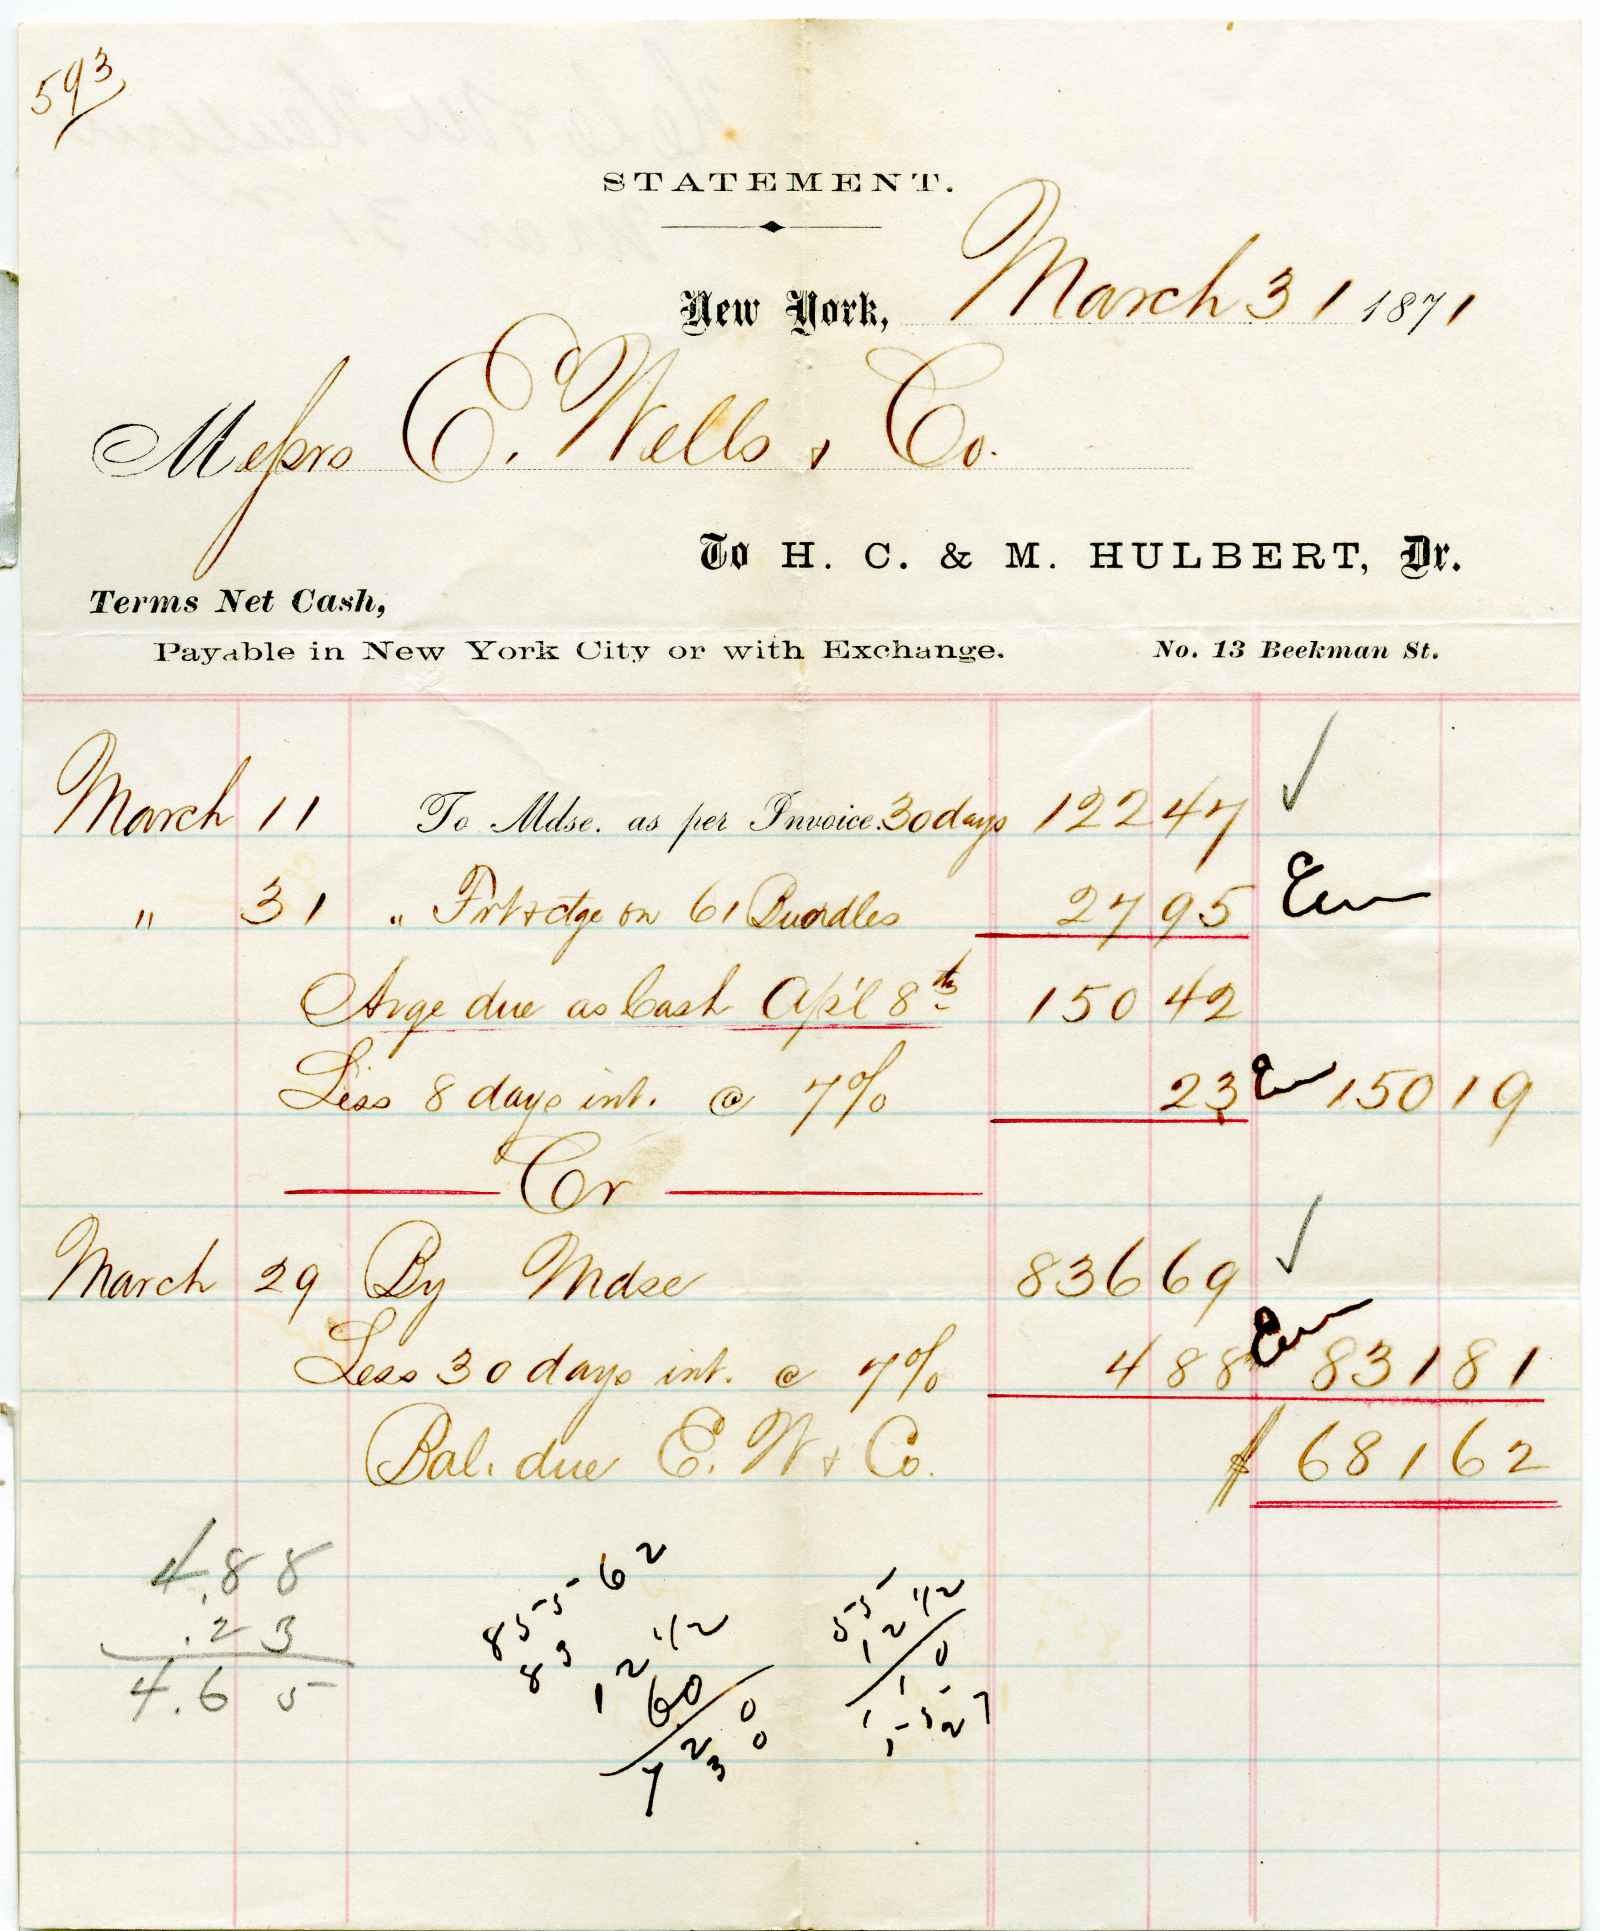 593
STATEMENT.
New York, March 31 1871
Messrs E. Wells & Co.
To H. C. & M. HULBERT, Dr.
Terms Net Cash,
Payable in New York City or with Exchange. No. 13 Beekman St.
March 11 To Mdse. as per Invoice. 30 days 122 47 ✓
" 31 " Frt & ctge on 61 Bundles 27 95
Avge due as Cash Ap'l 8th 150 42
Less 8 days int. @ 7% 23 150 19
Cr
March 29 By Mdse 836 69 ✓
Less 30 days int. @ 7% 4 88 831 81
Bal. due E. W & Co. $ 681 62
4.88
.23
4.65
85562
83
12 1/2
60
7230
55
12 1/2
10